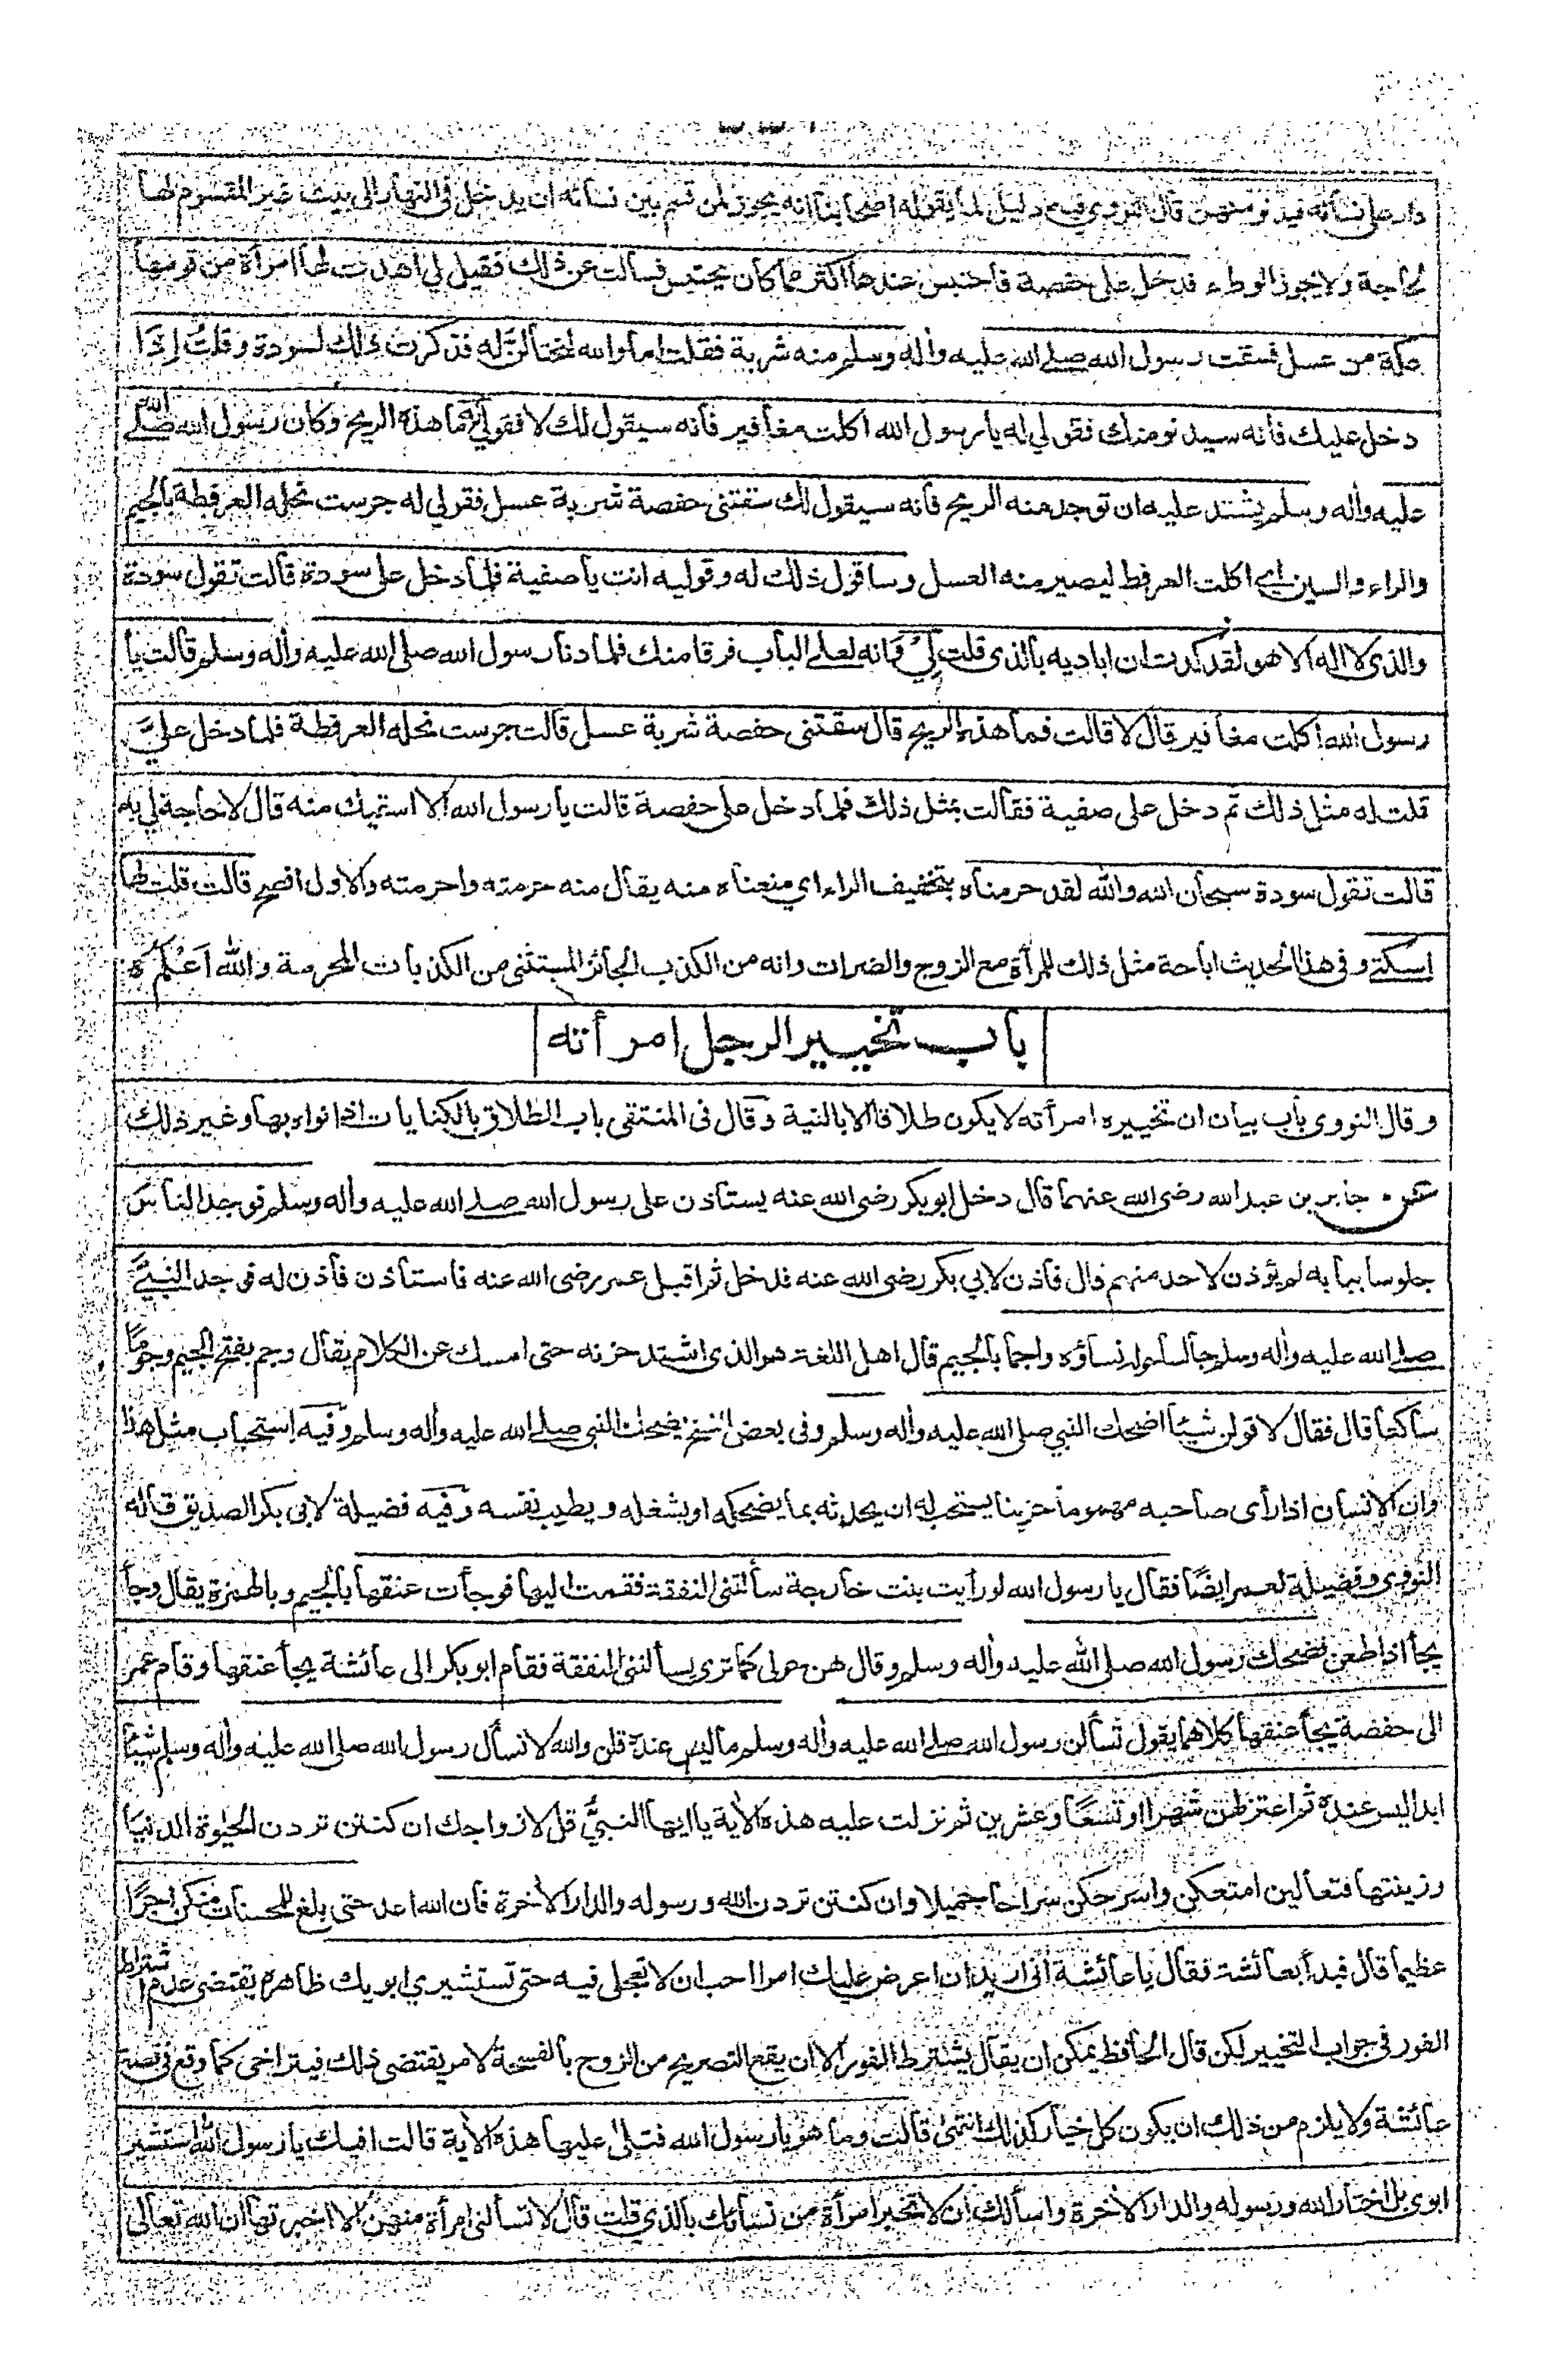 دار على نسائه فيدنو منهن قال النووي فيه دليل لما يقوله اصحابنا انه يجوز لمن قسم بين نسائه ان يدخل فى النهار الى بيت غير المقسوم لها
لحاجة ولا يجوز الوطء فدخل على حفصة فاحتبس عندها اكثر مما كان يحتبس فسألت عن ذلك فقيل لي اهدت لها امرأة من قومها
عكة من عسل فسقت رسول الله صلے الله عليه واٰله وسلم منه شربة فقلت اما والله لنحتالن له فذكرت ذلك لسودة وقلت إذا
دخل عليك فانه سيدنو منك فقولي له يا رسول الله اكلت مغافير فانه سيقول لك لا فقولي له ما هذه الريح وكان رسول الله صلے الله
عليه واٰله وسلم يشتد عليه ان توجد منه الريح فانه سيقول لك سقتنى حفصة شربة عسل فقولي له جرست نحله العرفطة بالجيم
والراء والسين اي اكلت العرفط ليصير منه العسل وساقول ذلك له وقوليه انت يا صفية فلما دخل على سودة قالت تقول سودة
والذى لا اله الا هو لقد كدت ان اباديه بالذى قلت لي وانه لعلى الباب فرقا منك فلما دنا رسول الله صلى الله عليه واٰله وسلم قالت يا
رسول الله اكلت مغافير قال لا قالت فما هذه الريح قال سقتنى حفصة شربة عسل قالت جرست نحله العرفطة فلما دخل عليَّ
قلت له مثل ذلك ثم دخل على صفية فقالت بمثل ذلك فلما دخل على حفصة قالت يا رسول الله الا اسقيك منه قال لا حاجة لي به
قالت تقول سودة سبحان الله والله لقد حرمناه بتخفيف الراء اي منعناه منه يقال منه حرمته واحرمته والاول افصح قالت قلت لها
اسكتي وفى هذا الحديث اباحة مثل ذلك للمرأة مع الزوج والضرات وانه من الكذب الجائز المستثنى من الكذبات المحرمة والله اَعْلم
باب تخيير الرجل امرأته
وقال النووى باب بيان ان تخييره امرأته لا يكون طلاقا الا بالنية وقال فى المنتقى باب الطلاق بالكنايات اذا نواه بها وغير ذلك
عن جابر بن عبد الله رضى الله عنهما قال دخل ابو بكر رضى الله عنه يستاذن على رسول الله صلے الله عليه واٰله وسلم فوجد الناس
جلوسا ببابه لم يؤذن لاحد منهم قال فاذن لابي بكر رضى الله عنه فدخل ثم اقبل عمر رضى الله عنه فاستأذن فأذن له فوجد النبيَّ
صلے الله عليه واٰله وسلم جالسا حوله نساؤه واجما بالجيم قال اهل اللغة هو الذى اشتد حزنه حتى امسك عن الكلام يقال وجم بفتح الجيم وجومًا
ساكتا قال فقال لا قولن شيئا اضحك النبي صلى الله عليه واٰله وسلم وفى بعض النسخ يضحك النبي صلے الله عليه واٰله وسلم وفيه استحباب مثل هذا
وان الانسان اذا رأى صاحبه مهموما حزينا يستحب له ان يحدثه بما يضحكه او يشغله ويطيب نفسه وفيه فضيلة لابى بكر الصديق قاله
النووى وفضيلة لعمر ايضًا فقال يا رسول الله لو رأيت بنت خارجة سألتنى النفقة فقمت اليها فوجأت عنقها بالجيم وبالهمزة يقال وجأ
يجأ اذا طعن فضحك رسول الله صلى الله عليه واٰله وسلم وقال هن حولى كما ترى يسألننى النفقة فقام ابو بكر الى عائشة يجأ عنقها وقام عمر
الى حفصة يجأ عنقها كلاهما يقول تسألن رسول الله صلے الله عليه واٰله وسلم ما ليس عنده قلن والله لا نسأل رسول الله صلى الله عليه واٰله وسلم شيئا
ابدا ليس عنده ثم اعتزلهن شهرا او تسعًا وعشرين ثم نزلت عليه هذه الاٰية يا ايها النبيُّ قل لازواجك ان كنتن تردن الحيٰوة الدنيا
وزينتها فتعالين امتعكن واسرحكن سراحا جميلا وان كنتن تردن الله ورسوله والدار الاٰخرة فان الله اعد حتى بلغ للمحسنات منكن اجرًا
عظيما قال فبدأ بعائشة فقال يا عائشة انى اريد ان اعرض عليك امرا احب ان لا تعجلى فيه حتى تستشيري ابويك ظاهره يقتضى عدم اشتراط
الفور فى جواب التخيير لكن قال الحافظ يمكن ان يقال يشترط الفور الا ان يقع التصريح من الزوج بالفسحة لامر يقتضى ذلك فيتراخى كما وقع فى قصة
عائشة ولا يلزم من ذلك ان يكون كل خيار كذلك انتهى قالت وما هو يا رسول الله فتلىٰ عليها هذه الاٰية قالت افيك يا رسول الله استشير
ابوى بل اختار الله ورسوله والدار الاٰخرة واسألك ان لا تخبر امرأة من نسائك بالذي قلت قال لا تسألنى امرأة منهن الا اخبرتها ان الله تعالى